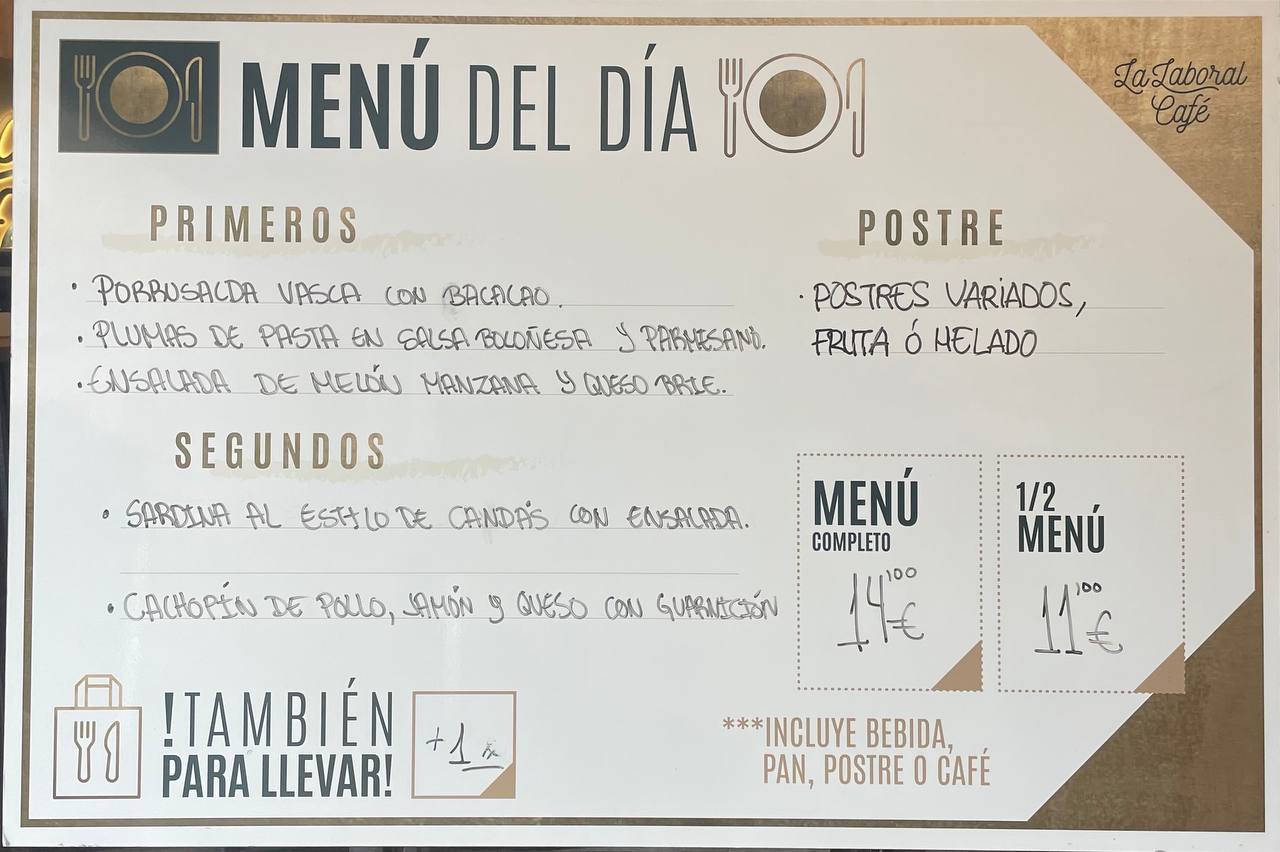 MENÚ DEL DÍA
La Laboral
Café
PRIMEROS
· PORRUSALDA VASCA CON BACALAO.
· PLUMAS DE PASTA EN SALSA BOLOÑESA Y PARMESANO.
· ENSALADA DE MELÓN MANZANA Y QUESO BRIE.
SEGUNDOS
· SARDINA AL ESTILO DE CANDÁS CON ENSALADA.
· CACHOPÍN DE POLLO, JAMÓN Y QUESO CON GUARNICIÓN
POSTRE
· POSTRES VARIADOS,
FRUTA Ó HELADO
MENÚ
COMPLETO
14'00€
1/2
MENÚ
11'00€
!TAMBIÉN
PARA LLEVAR!
+1
***INCLUYE BEBIDA,
PAN, POSTRE O CAFÉ